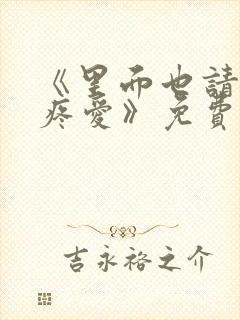 《里面也請
疼愛》免費
吉永裕之介